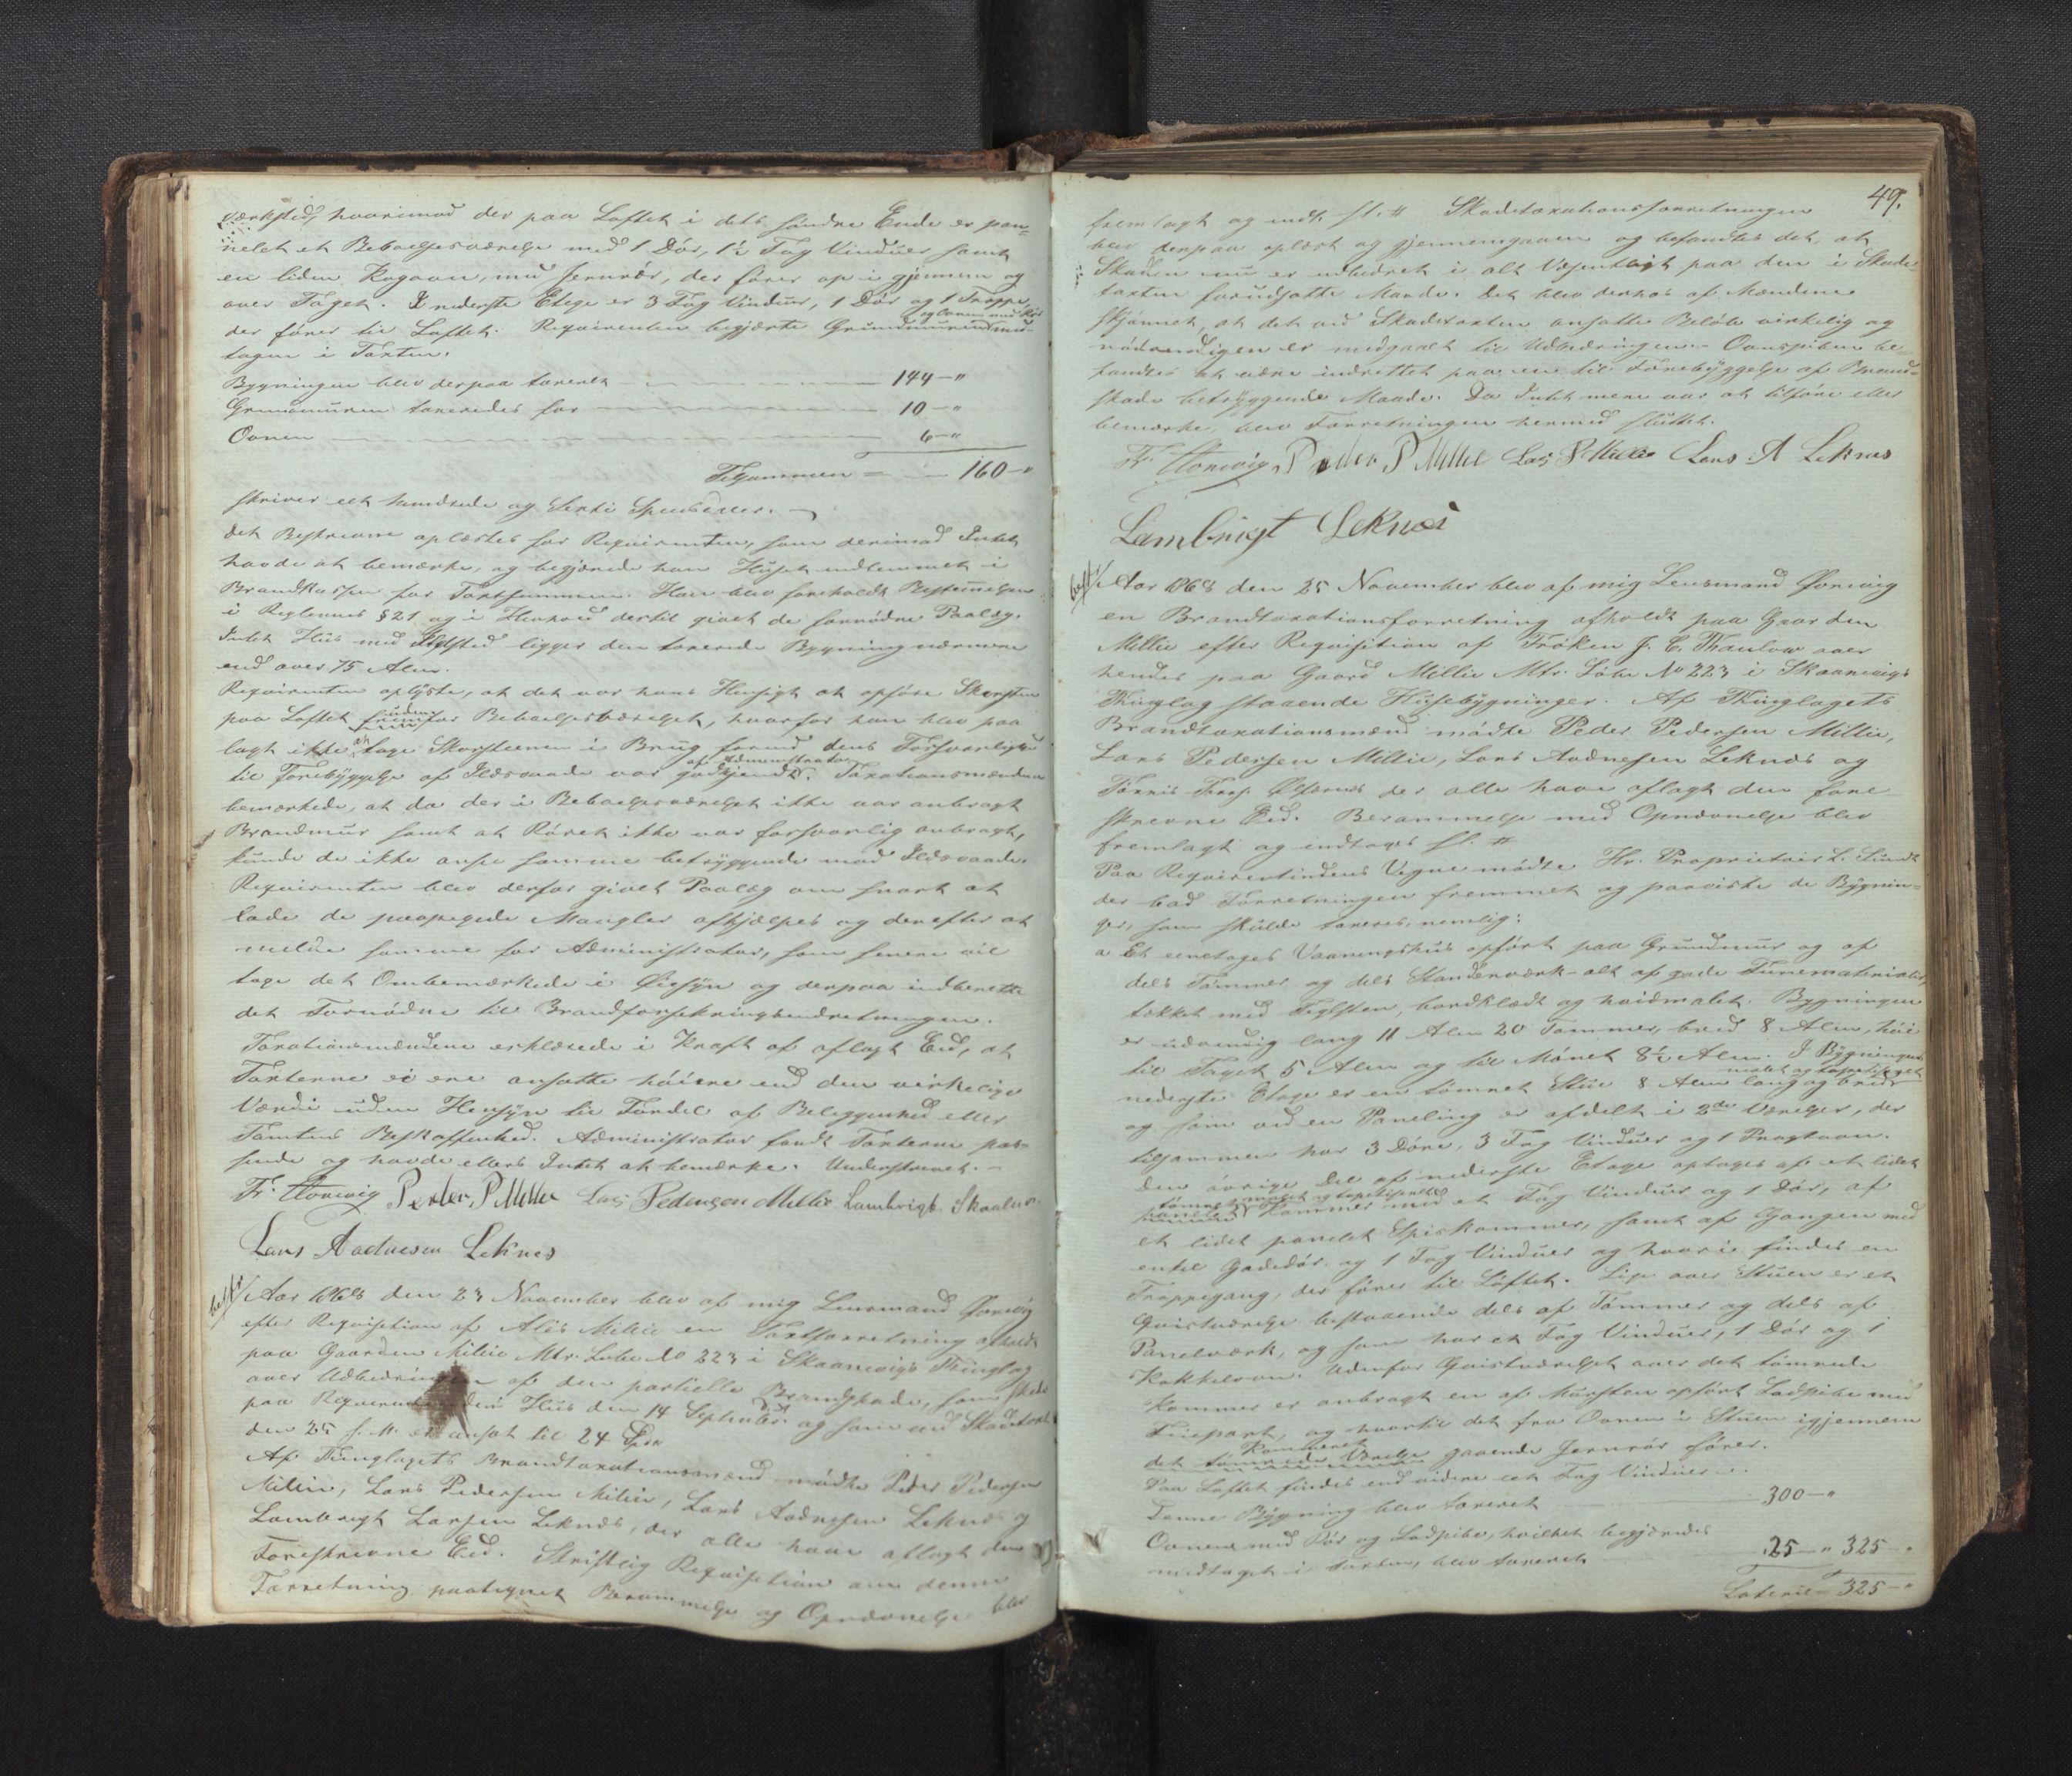 værksted, hvorimod der paa Loftet i dets søndre Ende er pan-
nelet et Beboelsesværelse med 1 Dør, 1½ Fag Vinduer samt
en liden Kogovn, med Jernrør, der fører op i gjennem og
over Taget. I nederste Etage er 3 Fag Vinduer, 1 Dør og 1 Trappe,
der fører til Loftet. Requirenten begjærte Grundmuren og Ovnen med Rør med-
tagen i Taxten.
Bygningen blev derpaa taxeret 144 – "
Grundmuren taxeredes for 10 – "
Ovnen 6 – "
Tilsammen = 160 – "
skriver eet hundrede og Sexti Speciedaler.
Det Beskrevne oplæstes for Requirenten, som derimod Intet
havde at bemærke, og begjærede han Huset indlemmet i
Brandkassen for Taxtsummen. Han blev foreholdt Bestemmelsen
i Reglernes § 21 og i Henhold dertil givet de fornødne Paalæg.
Intet Hus med Ildsted ligger den taxerede Bygning nærmere
end over 75 Alen.
Requirenten oplyste, at det var hans Hensigt at opføre Skorsten
paa Loftet udenfor Beboelsesværelset, hvorfor han blev paa
lagt ikke at tage Skorstenen i Brug forend dens Forsvarlighed
til Forebyggelse af Ildsvaade var godkjendt af Administrator. Taxationsmændene
bemærkede, at da der i Beboelsesværelset ikke var anbragt
Brandmur samt at Røret ikke var forsvarlig anbragt,
kunde de ikke anse samme betryggende mod Ildsvaade.
Requirenten blev derfor givet Paalæg om snart at
lade de paapegede Mangler afhjælpes og derefter at
melde samme for Administrator, som senere vil
tage det Ombemærkede i Øiesyn og derpaa indberette
det Fornødne til Brandforsikringsindretningen.
Taxationsmændene erklærede i Kraft af aflagt Eed, at
Taxterne ei ere ansatte høiere end den virkelige
Værdi uden Hensyn til Fordel af Beliggenhed eller
Tomtens Beskaffenhed. Administrator fandt Taxterne pas-
sende og havde ellers Intet at bemærke. Underskrevet. –
Fr. Peder P Millie Lars Pedersen Millie Lambrigt Skaalnes
Lars Aadnesen Leknes
Aar 1868 den 23 November blev af mig Lensmand
efter Requisition af Alis Millie en Taxtforretning afholdt
paa Gaarden Milie Mtr. Lube No 223 i Skaanevigs Thinglag
over Udbedringen af den partielle Brandskade, som skede
paa Hus den 14 September og som ved Skadetaxt
den 25 s. M. er ansat til 24 Spd
Af Thinglagets Brandtaxationsmænd mødte Peder Pedersen
Milie, Lars Pedersen Milie, Lars Aadnesen Leknes og
Lambrigt Larsen Leknes, der alle have aflagt den
Foreskrevne Eed. Skriftlig Requisition om denne
Forretning paategnet Berammelse og Opnævnelse blev
49.
fremlagt og indt. sl. # Skadetaxationsforretningen
blev derpaa oplæst og gjennemgaaen og befandtes det, at
Skaden nu er udbedret i alt Væsentligt paa den i Skade-
taxten forudsatte Maade. Det blev derhos af Mændene
skjønnet, at det ved Skadetaxten ansatte Beløb virkelig og
nødvendigen er medgaaet til Udbedringen. – Ovnspiben be-
fandtes at være indrettet paa en til Forebyggelse af Brand-
skade betryggende Maade. Da Intet mere var at tilføre eller
bemærke, blev Forretningen hermed sluttet.
Fr. Peder P Millie Lars P. Millie Lars A Leknes
Lambrigt Leknes
Aar 1868 den 25 November blev af mig Lensmand
en Brandtaxationsforretning afholdt paa Gaarden
Millie efter Requisition af Frøken J. C. Thaulow over
hendes paa Gaard Millie Mtr. Løbe No 223 i Skaanevigs
Thinglag staaende Husebygninger. Af Thinglagets
Brandtaxationsmænd mødte Peder Pedersen Millie,
Lars Pedersen Millie, Lars Aadnesen Leknes og
der alle have aflagt den fore-
skrevne Eed. Berammelse med Opnævnelse blev
fremlagt og indtages sl. #
Paa Requirentindens Vegne mødte Hr. Proprietair L. Sundt
der bad Forretningen fremmet og paaviste de Bygnin-
ger, som skulde taxeres, nemlig:
a Et eenetages Vaaningshus opført paa Grundmur og af
dels Tømmer og dels Standerværk – alt af gode Furematerialer,
tækket med Teglsten, bordklædt og hvidmalet. Bygningen
er udvendig lang 11 Alen 20 Tommer, bred 8 Alen, høi
til Taget 5 Alen og til Mønet 8½ Alen. I Bygningens
nederste Etage er en tømret Stue 8 Alen lang og bred malet og tapetseret
og som ved en Paneling er afdelt i 2de Værelser, der
tilsammen har 3 Døre, 3 Fag Vinduer og 1 Pragtovn.
Den øvrige Del af nederste Etage optages af et lidet
tømret malet og tapetseret Kammer med et Fag Vinduer og 1 Dør, af
et lidet panelet Spiskammer, samt af Gangen med
enkel Gadedør og 1 Fag Vinduer og hvori findes en
Trappegang, der fører til Loftet. Lige over Stuen er et
Qvistværelse bestaaende dels af Tømmer og dels af
Panelværk, og som har et Fag Vinduer, 1 Dør og 1
Kakkelovn. Udenfor Qvistværelset over det tømrede
Kammer er anbragt en af Mursten opført Ladpibe med
Fiirpart, og hvortil det fra Ovnen i Stuen igjennem
det tømrede Værelse Kammeret gaaende Jernrør fører.
Paa Loftet findes end videre eet Fag Vinduer.
Denne Bygning blev taxeret 300 – "
Ovnene med Rør og Ladpibe, hvilket begjæredes
medtaget i Taxten, blev taxeret 25 – " 325 – "
Lateris – 325 – "